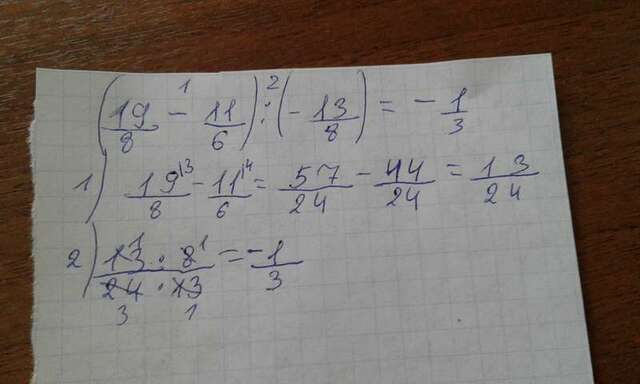 (19/8 - 11/6) : (-13/8) = -1/3
1) 19/8 - 11/6 = 57/24 - 44/24 = 13/24
2) 13 · 8 / 24 · 13 = -1/3